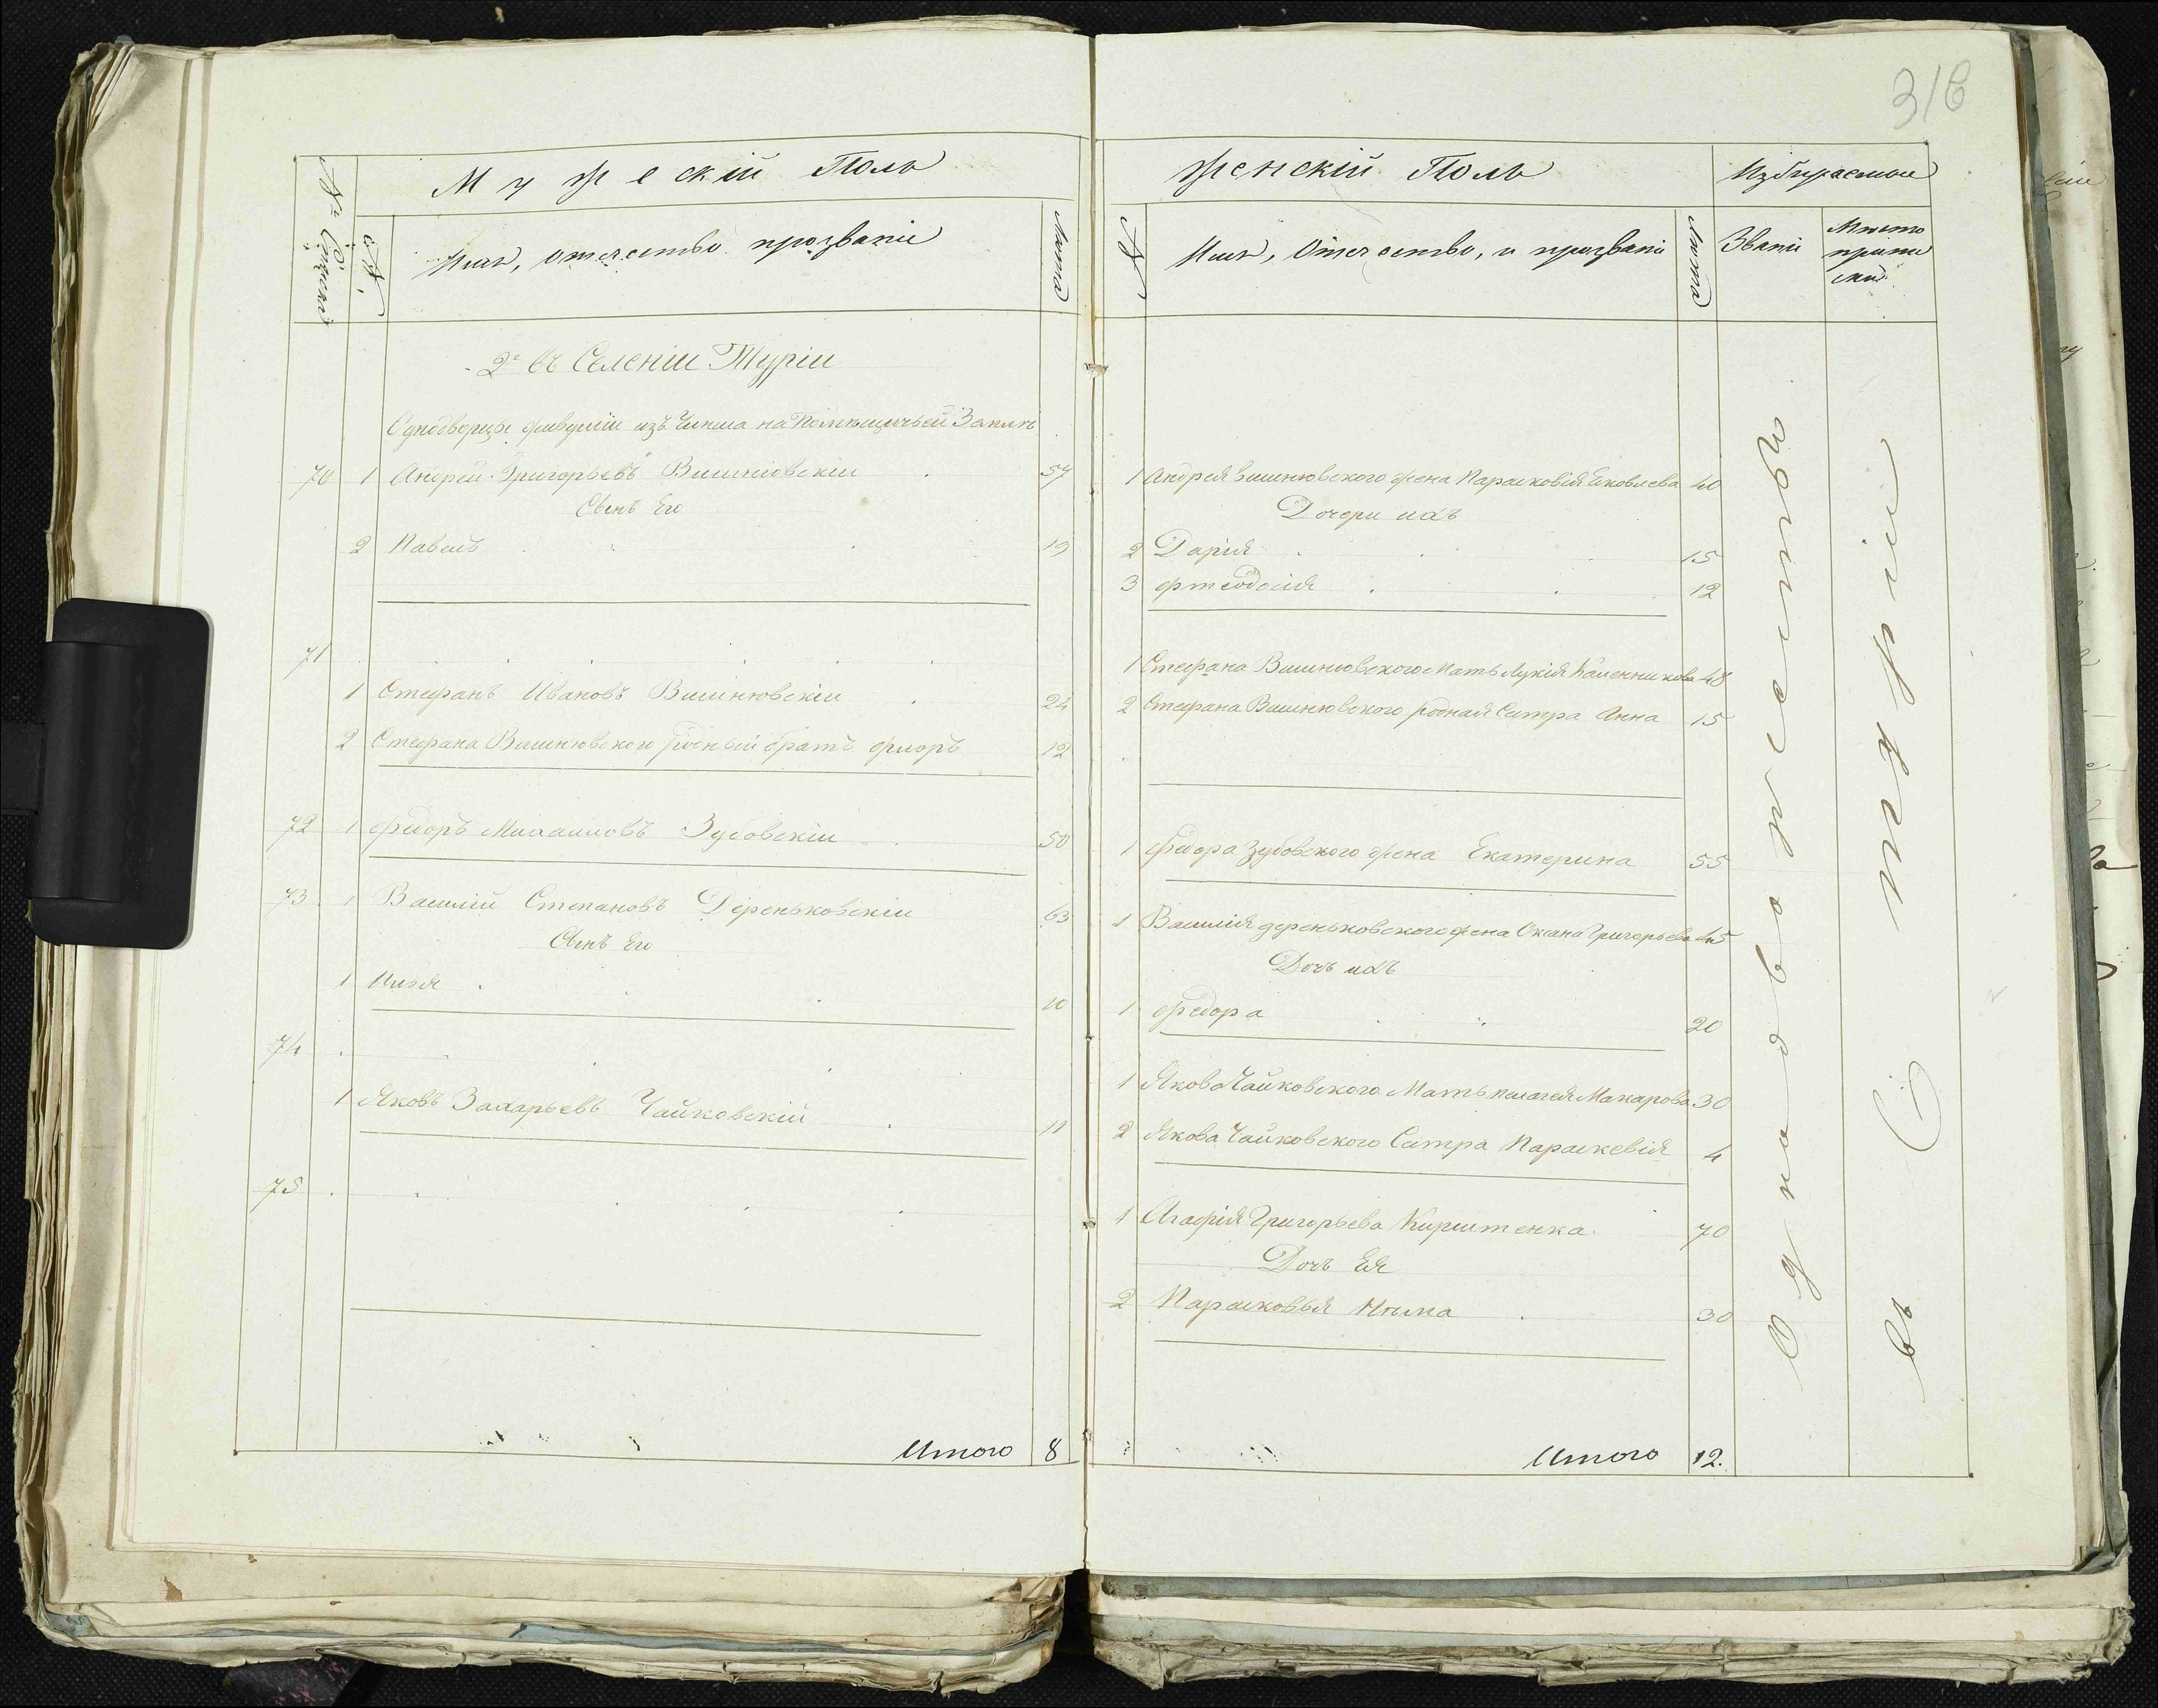 316
Мужескій Полъ
№ Списка
№
Имя, отечество прозваніе
Лѣта
2е въ Селеніи Туріи
Однодворцы живущіи изъ Чинша на Помѣщичьей Землѣ
70 1 Андрей Григорьевъ Вишнювскіи 57
Сынъ Его
2 Павелъ 19
71
1 Стефанъ Ивановъ Вишнювскіи 24
2 Стефана Вишнювского родный братъ Флоръ 12
72 1 Федоръ Михаиловъ Зубовскіи 50
73 1 Василій Степановъ Дереньковскіи 63
Сынъ Его
1 Илья 10
74
1 Яковъ Захарьевъ Чайковскій 11
75
Итого 8
Женскій Полъ
№
Имя, Отечество, и прозваніе
Лѣта
1 Андрея Вишнювского жена Парасковія Яковлева 40
Дочери ихъ
2 Дарія 15
3 Фтеодосія 12
1 Стефана Вишнювского Мать Лукія 48
2 Стефана Вишнювского родная Сестра Анна 15
1 Федора Зубовского жена Екатерина 55
1 Василія дереньковского жена Оксана Григорьева 45
Дочь ихъ
1 Федора 20
1 Якова Чайковского Мать Пелагея Макарова 30
2 Якова Чайковского Сестра Параскевія 4
1 Агафія Григорьева 70
Дочь Ея
2 Парасковья 30
Итого 12.
Избираемыи
Званіе
Мѣсто приписки
Однодворчество
въ С Туріи